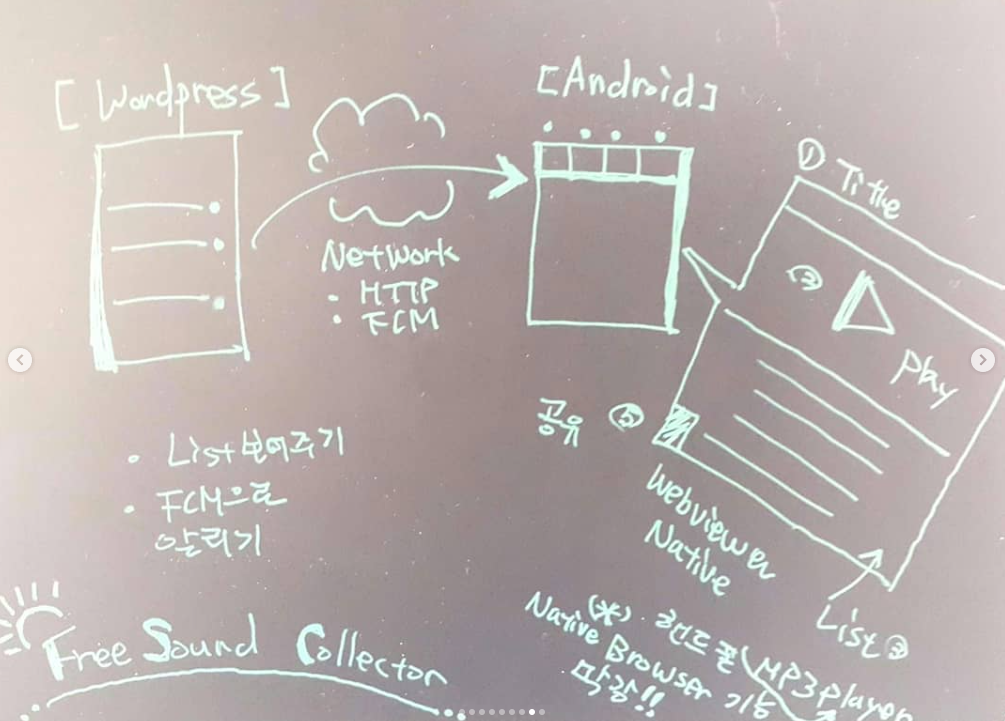 [Wordpress]
[Android]
Network
• HTTP
• FCM
① Title
②
Play
공유 ⑤
Webviewer
Native
List ③
• List 보여주기
• FCM으로
알리기
Free Sound Collector
(*) 핸드폰 MP3 Player
Native Browser 기능
막강!!